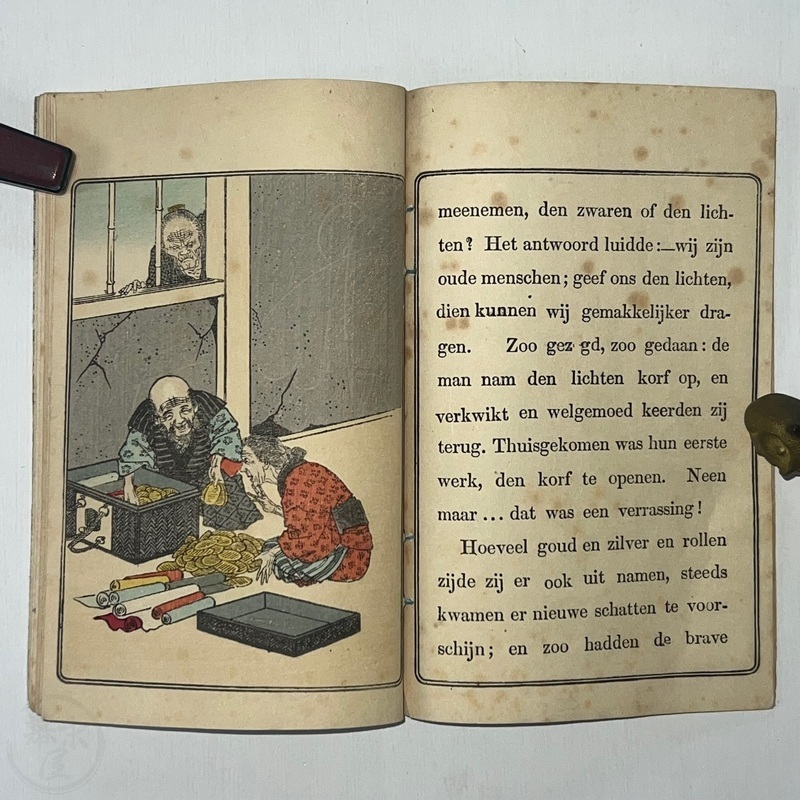 meenemen, den zwaren of den lich-
ten? Het antwoord luidde:—wij zijn
oude menschen; geef ons den lichten,
dien kunnen wij gemakkelijker dra-
gen. Zoo gez gd, zoo gedaan: de
man nam den lichten korf op, en
verkwikt en welgemoed keerden zij
terug. Thuisgekomen was hun eerste
werk, den korf te openen. Neen
maar ... dat was een verrassing!
Hoeveel goud en zilver en rollen
zijde zij er ook uit namen, steeds
kwamen er nieuwe schatten te voor-
schijn; en zoo hadden de brave